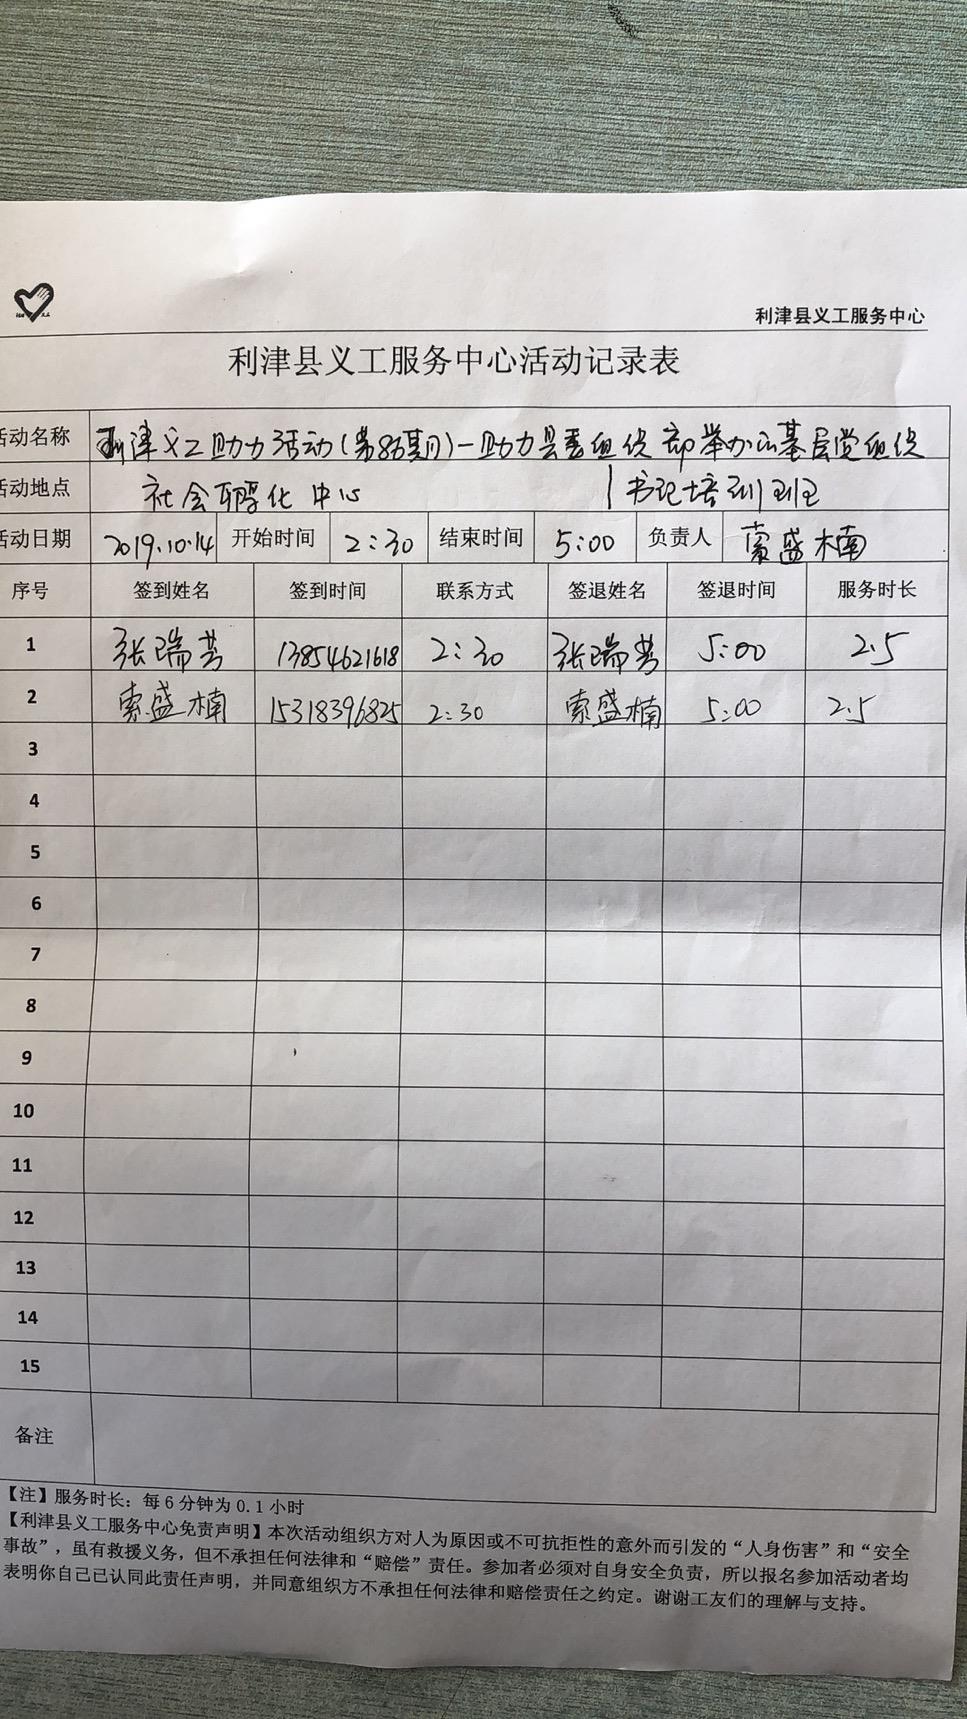 利津县义工服务中心
利津县义工服务中心活动记录表
活动名称 利津义工助力活动(第86期)—助力县委组织部举办的基层党组织
书记培训班
活动地点 社会孵化中心
活动日期 2019.10.14 开始时间 2:30 结束时间 5:00 负责人 索盛楠
序号 签到姓名 签到时间 联系方式 签退姓名 签退时间 服务时长
1 张瑞芳 13854621618 2:30 张瑞芳 5:00 2.5
2 索盛楠 15318396825 2:30 索盛楠 5:00 2.5
3
4
5
6
7
8
9
10
11
12
13
14
15
备注
【注】服务时长：每6分钟为0.1小时
【利津县义工服务中心免责声明】本次活动组织方对人为原因或不可抗拒性的意外而引发的“人身伤害”和“安全
事故”，虽有救援义务，但不承担任何法律和“赔偿”责任。参加者必须对自身安全负责，所以报名参加活动者均
表明你自己已认同此责任声明，并同意组织方不承担任何法律和赔偿责任之约定。谢谢工友们的理解与支持。